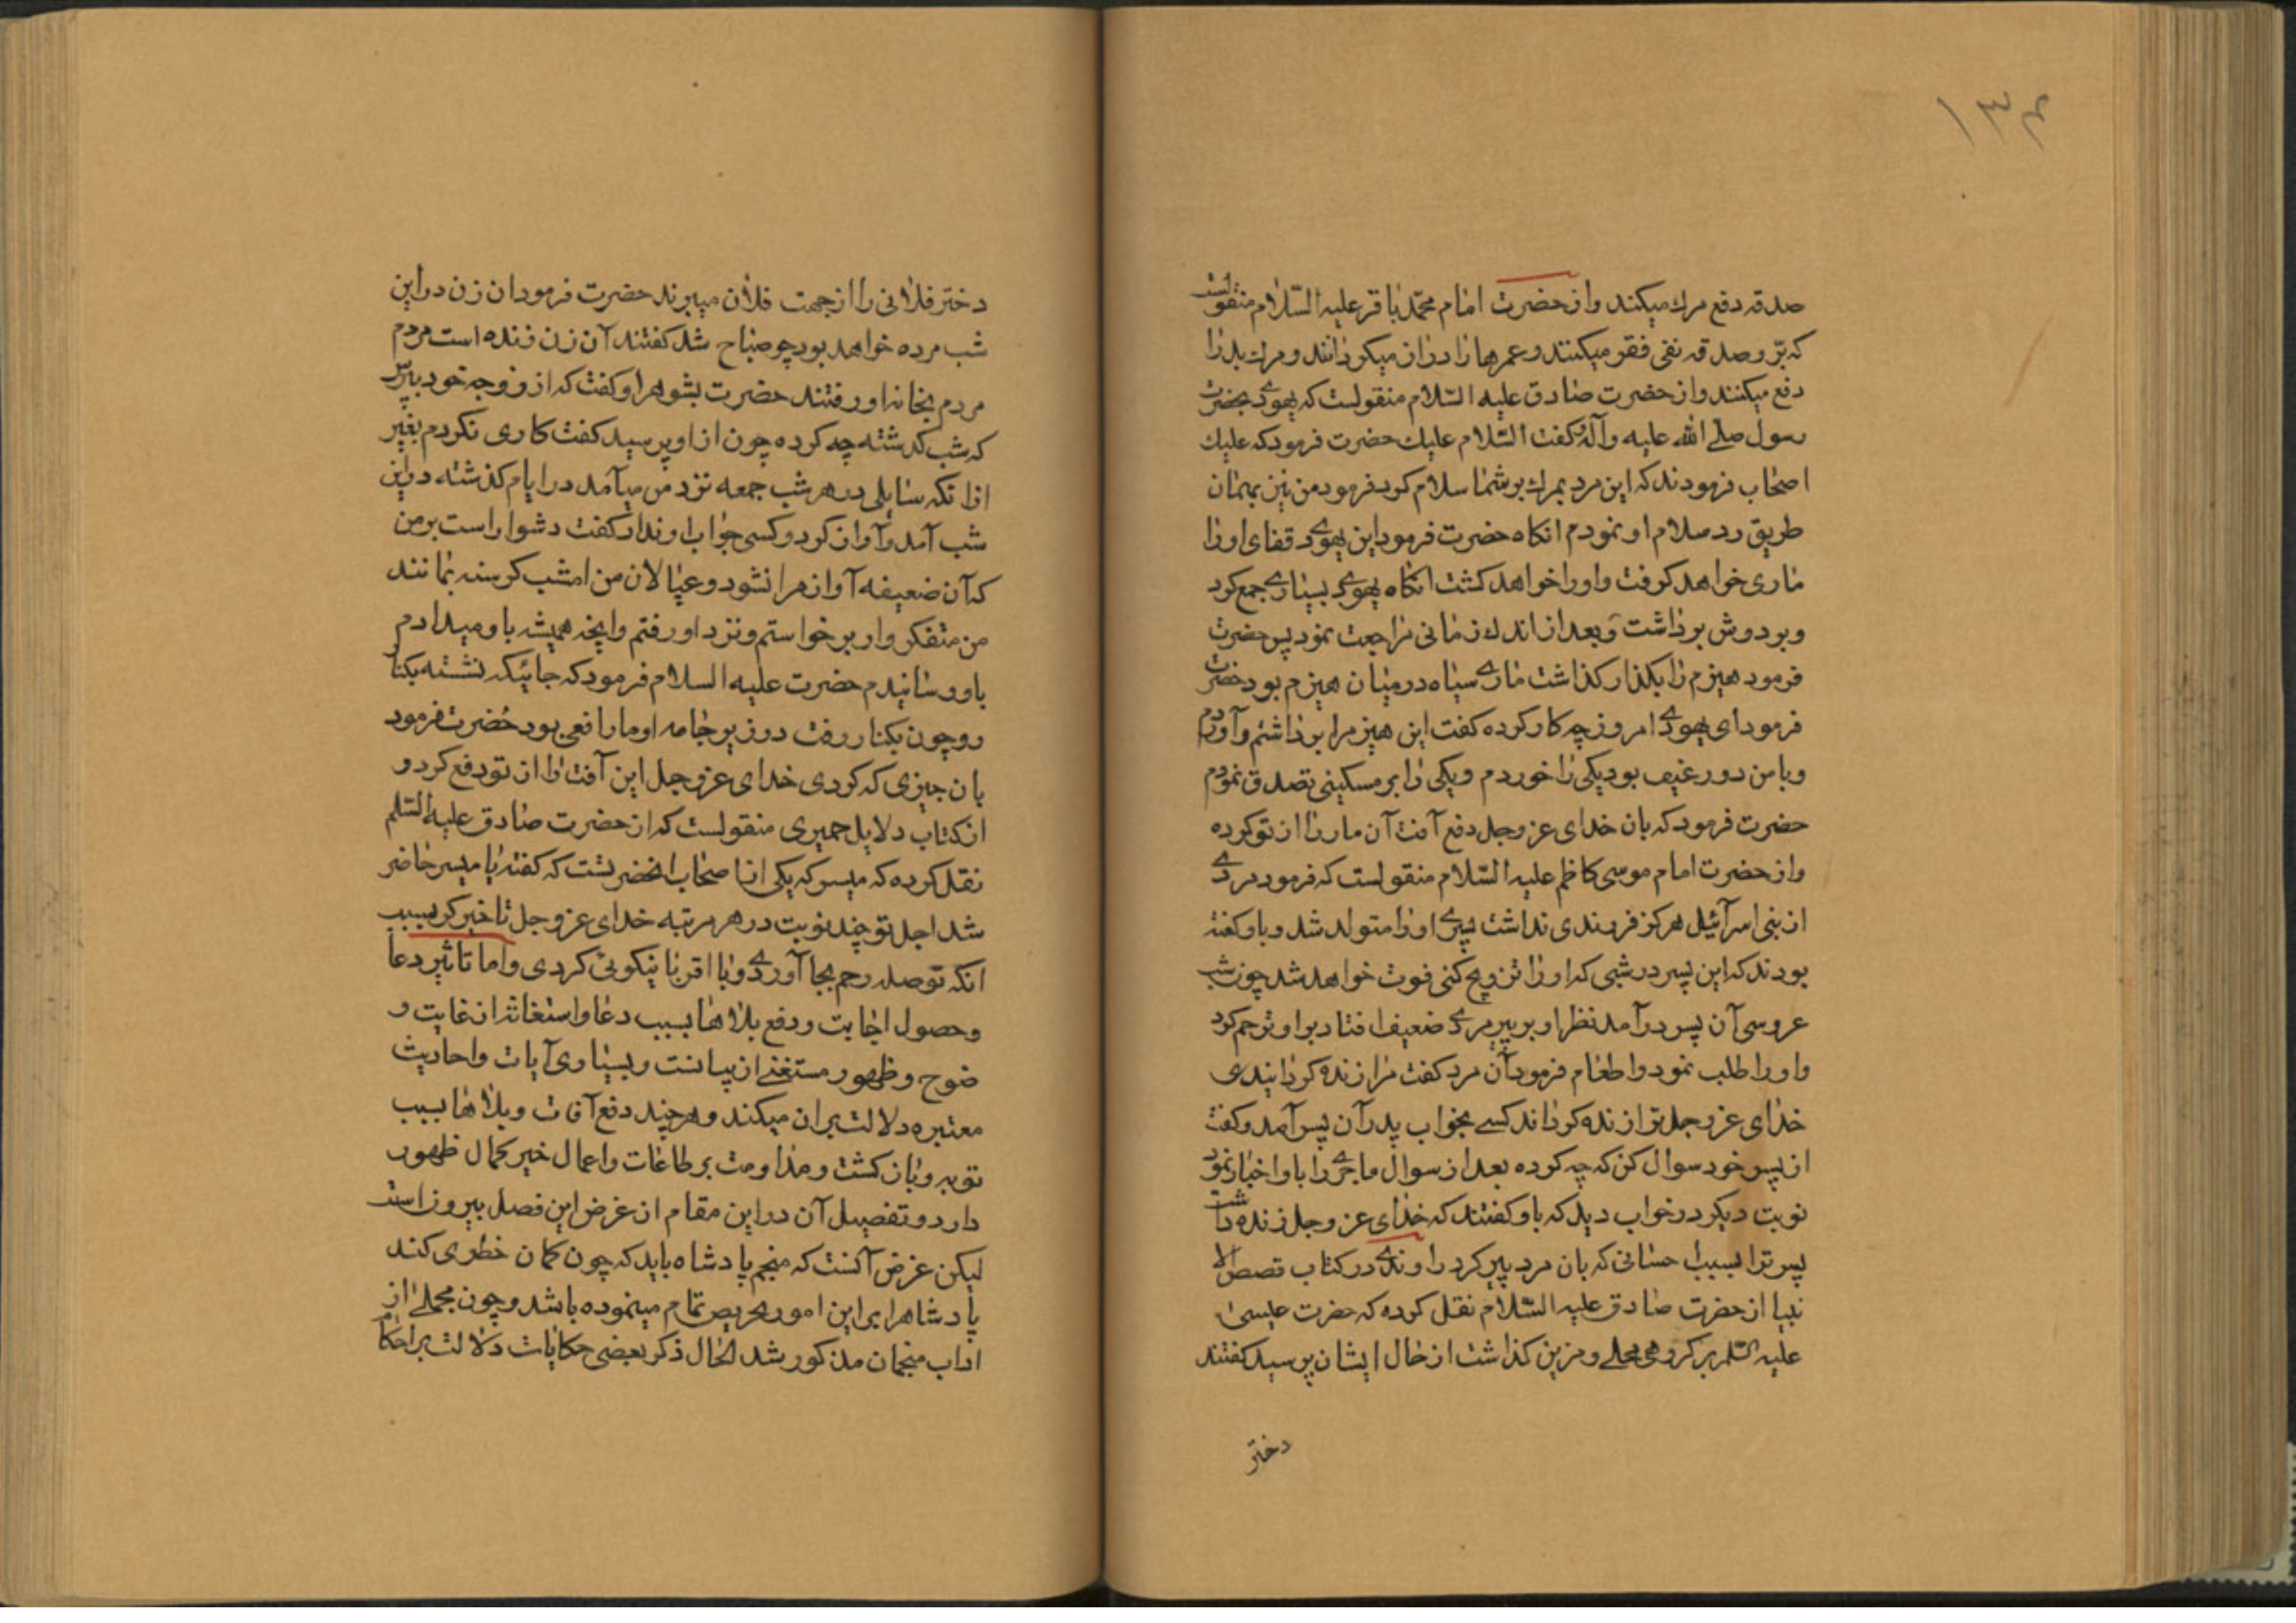 ۱۳۴
صدقه دفع مرك میکند و از حضرت امام محمّد باقر علیه السّلام منقولست
که برّ و صدقه نفی فقر میکنند و عمرها را دراز میکردانند و مرك بد را
دفع میکنند و از حضرت صادق علیه السّلام منقولست که یهودے بحضرت
رسول صلے الله علیه وآله کفت السّلام علیك حضرت فرمود که علیك
اصحاب فرمودند که این مرد بمرك بر شما سلام کرد فرمود من نیز بهمان
طریق رد سلام او نمودم انکاه حضرت فرمود این یهودے قفای او را
ماری خواهد کرفت و او را خواهد کشت انکاه یهودے هیزم بسیارے جمع کرد
و بر دوش برداشت و بعد از اندك زمانی مراجعت نمود پس حضرت
فرمود هیزم را بکذار کذاشت مارے سیاه در میان هیزم بود حضرت
فرمود ای یهودے امروز چه کار کرده کفت این هیزم را برداشتم و آوردم
و با من دو رغیف بود یکی را خوردم و یکی را بر مسکینی تصدق نمودم
حضرت فرمود که بان خدای عز وجل دفع آفت آن مار را از تو کرده
و از حضرت امام موسی کاظم علیه السّلام منقولست که فرمود مردے
از بنی اسرآئیل هرکز فرزندی نداشت پسرے او را متولد شد و باو کفته
بودند که این پسر در شبی که او را تزویج کنی فوت خواهد شد چون شب
عروسی آن پسر درآمد نظر او بر پیر مردے ضعیف افتاد بر او ترحم کرد
و او را طلب نمود و اطعام فرمود آن مرد کفت مرا زنده کردانیدی
خدای عز وجل ترا زنده کرداند کسے بخواب پدر آن پسر آمد و کفت
از پسر خود سوال کن که چه کرده بعد از سوال ماجرے را باو اخبار نمود
نوبت دیکر در خواب دید که باو کفتند که خدای عز وجل زنده داشت
پسر ترا بسبب احسانی که بان مرد پیر کرد راوندے در کتاب قصص الا
نبیا از حضرت صادق علیه السّلام نقل کرده که حضرت عیسی
علیه السّلم بر کروهی محلے و مزین کذاشت از حال ایشان پرسید کفتند
دختر
دختر فلانی را از جهت فلان میبرند حضرت فرمود ان زن در این
شب مرده خواهد بود چو صباح شد کفتند آن زن زنده است مردم
مردم بخانه او رفتند حضرت بشوهر او کفت که از زوجه خود بپرس
که شب کذشته چه کرده چون از او پرسید کفت کاری نکردم بغیر
ازانکه سایلی در هر شب جمعه نزد من میآمد در ایام کذشته در این
شب آمد و آواز کرد و کسی جواب او نداد کفت دشوار است بر من
که آن ضعیفه آواز مرا نشنود و عیالان من امشب کرسنه بمانند
من متفکر وار برخواستم و نزد او رفتم و انچه همیشه باو میدادم
باو رسانیدم حضرت علیه السلام فرمود که جائیکه نشسته بکنار
رو چون بکنار رفت در زیر جامه او مار افعی بود حضرت فرمود
بان چیزی که کردی خدای عز وجل این آفت را از تو دفع کرد و
از کتاب دلایل حمیری منقولست که از حضرت صادق علیه السّلم
نقل کرده که میسر که یکی از اصحاب انحضرتست که کفته یا میسر حاضر
شد اجل تو چند نوبت در هر مرتبه خدای عز وجل تاخیر کرد بسبب
انکه تو صله رحم بجا آوردے و با اقربا نیکویئ کردی و اما تاثیر دعا
و حصول اجابت و دفع بلاها بسبب دعا و استغاثه از غایت و
ضوح و ظهور مستغنے از بیانست و بسیاری آیات و احادیث
معتبره دلالت بر ان میکند و هر چند دفع آفات و بلاها بسبب
توبه و بازکشت و مداومت بر طاعات و اعمال خیر کمال ظهور
دارد و تفصیل آن در این مقام از غرض این فصل بیرون است
لیکن غرض آنست که منجم پادشاه باید که چون کمان خطری کند
پادشاه را بر این امور تحریص تمام مینموده باشد و چون مجملے از
اداب منجمان مذکور شد الحال ذکر بعضی حکایات دلالت بر احکا